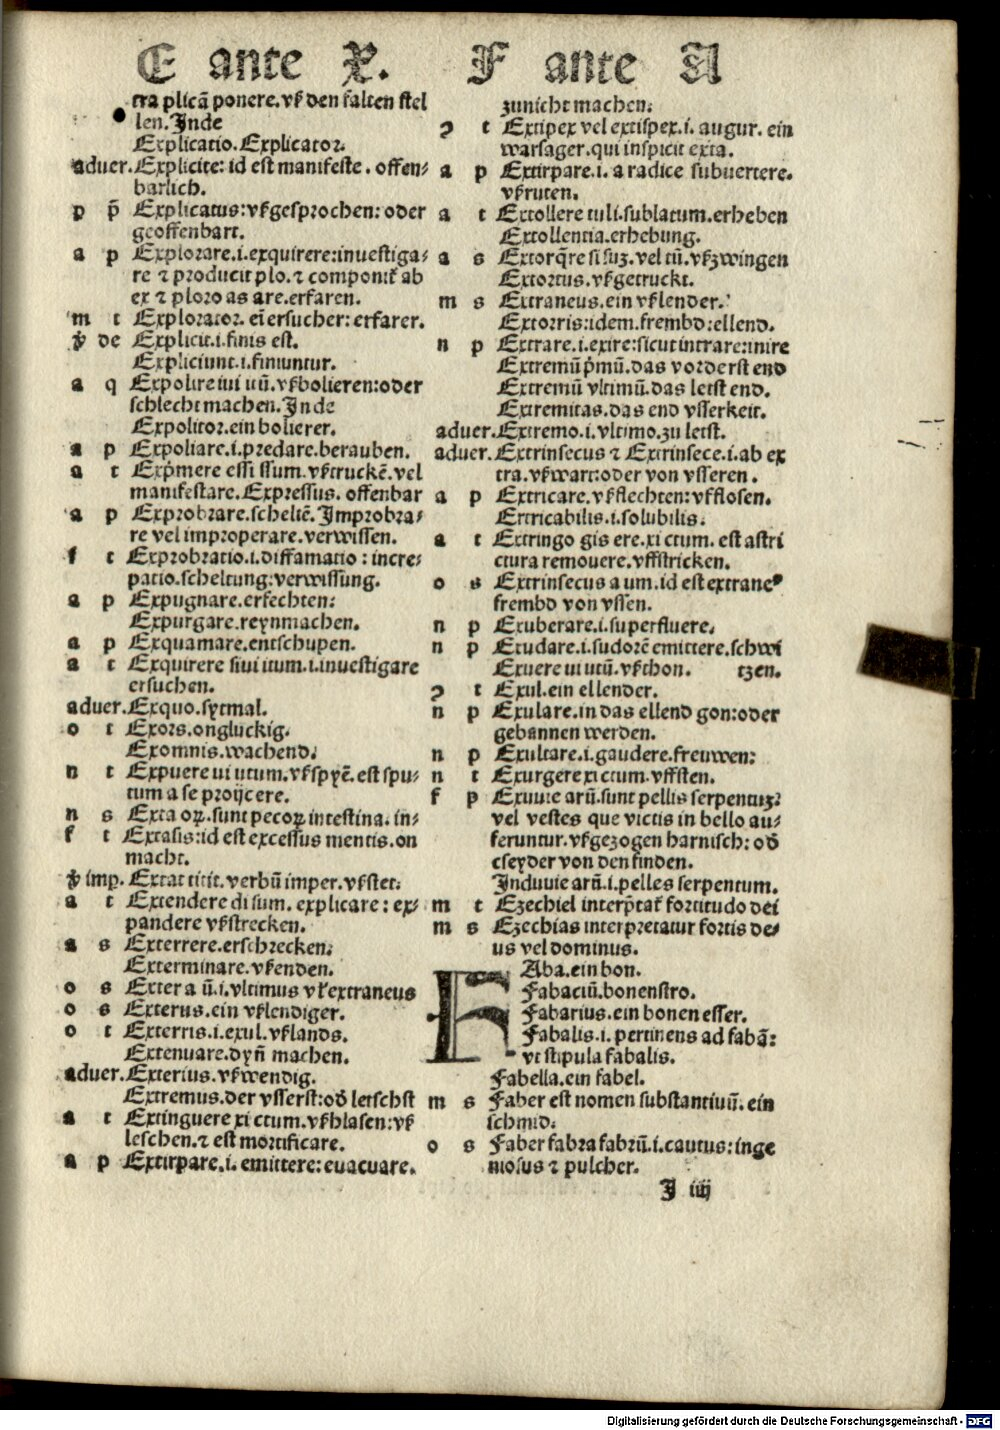 E ante X.
tra plicā ponere.vſz den falten ſtel
len.Inde
Explicatio.Explicator.
aduer. Explicite: id est manifeste. offen⸗
barlich.
p p̄ Explicatus:vſzgesprochen:oder
geoffenbart.
a p Explorare.i.exquirere:inuestiga⸗
re ⁊ producit plo.⁊ componit᷑ ab
ex ⁊ ploro as are.erfaren.
m t Explorator. eī ersucher:erfarer.
de Explicit.i.finis est.
Expliciunt.i.finiuntur.
a q Expolire iui itū.vſzbolieren:oder
schlecht machen.Inde
Expolitor.ein bolierer.
a p Expoliare.i.predare.berauben.
a t Exp̄mere essi ssum.vſztruckē.vel
manifestare.Expressus. offenbar
a p Exprobrare.scheltē.Improbra⸗
re vel improperare.verwissen.
f t Exprobratio.i.diffamatio: incre⸗
patio.scheltung:verwissung.
a p Expugnare.erfechten:
Expurgare.reynmachen.
a p Exquamare.entschupen.
a t Exquirere siui itum.i.inuestigare
ersuchen.
aduer. Exquo.sytmal.
o t Exors.ongluckig.
Exomnis.wachend.
n t Expuere ui utum.vſzspyē.est spu⸗
tum a se proijcere.
n s Exta oꝝ.sunt pecoꝝ intestina. in⸗
f t Extasis:id est excessus mentis.on
macht.
imp. Extat titit.verbū imper.vſzstet.
a t Extendere di sum. explicare: ex⸗
pandere vſzstrecken.
a s Exterrere.erschrecken.
Exterminare.vſzenden.
o s Exter a ū.i.vltimus vl᷑ extraneus
o s Exterus.ein vſzlendiger.
o t Exterris.i.exul.vſzlands.
Extenuare.dyñ machen.
aduer. Exterius.vſzwendig.
Extremus.der vsserst:od̄ letschst
a t Extinguere xi ctum.vſzblasen:vſz
leschen.⁊ est mortificare.
a p Extirpare.i. emittere: euacuare.
F ante A
zunicht machen.
ꝯ t Extipex vel extispex.i. augur. ein
warsager.qui inspicit exta.
a p Extirpare.i. a radice subuertere.
vſzruten.
a t Extollere tuli.sublatum.erheben
Extollentia.erhebung.
a s Extorq̄re si suꝫ. vel tū. vſzzwingen
Extortus.vſzgetruckt.
m s Extraneus.ein vſzlender.
Extorris:idem.frembd:ellend.
n p Extrare.i.exire:sicut intrare:inire
Extremū p̄mū.das vorderst end
Extremū vltimū.das letst end.
Extremitas.das end vsserkeit.
aduer. Extremo.i.vltimo.zu letst.
aduer. Extrinsecus ⁊ Extrinsece.i.ab ex
tra.vſzwart:oder von vsseren.
a p Extricare.vſzflechten:vfflosen.
Extricabilis.i.solubilis.
a t Extringo gis ere.xi ctum. est astri
ctura remouere.vffstricken.
o s Extrinsecus a um.id est extraneꝰ
frembd von vssen.
n p Exuberare.i.superfluere.
n p Exudare.i.sudorē emittere.schwi
Exuere ui utū.vſzthon. tzen.
ꝯ t Exul.ein ellender.
n p Exulare.in das ellend gon:oder
gebannen werden.
n p Exultare.i.gaudere.freuwen:
n t Exurgere xi ctum.vffsten.
f p Exuuie arū.sunt pellis serpentuꝫ:
vel vestes que victis in bello au⸗
feruntur.vſzgezogen harnisch: od̄
cleyder von den finden.
Induuie arū.i.pelles serpentum.
m t Ezechiel interp̄tat᷑ fortitudo dei
m s Ezechias interpretatur fortis de⸗
us vel dominus.
FAba.ein bon.
Fabaciū.bonenstro.
Fabarius.ein bonen esser.
Fabalis.i. pertinens ad fabā:
vt stipula fabalis.
Fabella.ein fabel.
m s Faber est nomen substantiuū. ein
schmid.
o s Faber fabra fabrū.i.cautus:inge
niosus ⁊ pulcher.
I iiij
Digitalisierung gefördert durch die Deutsche Forschungsgemeinschaft - DFG